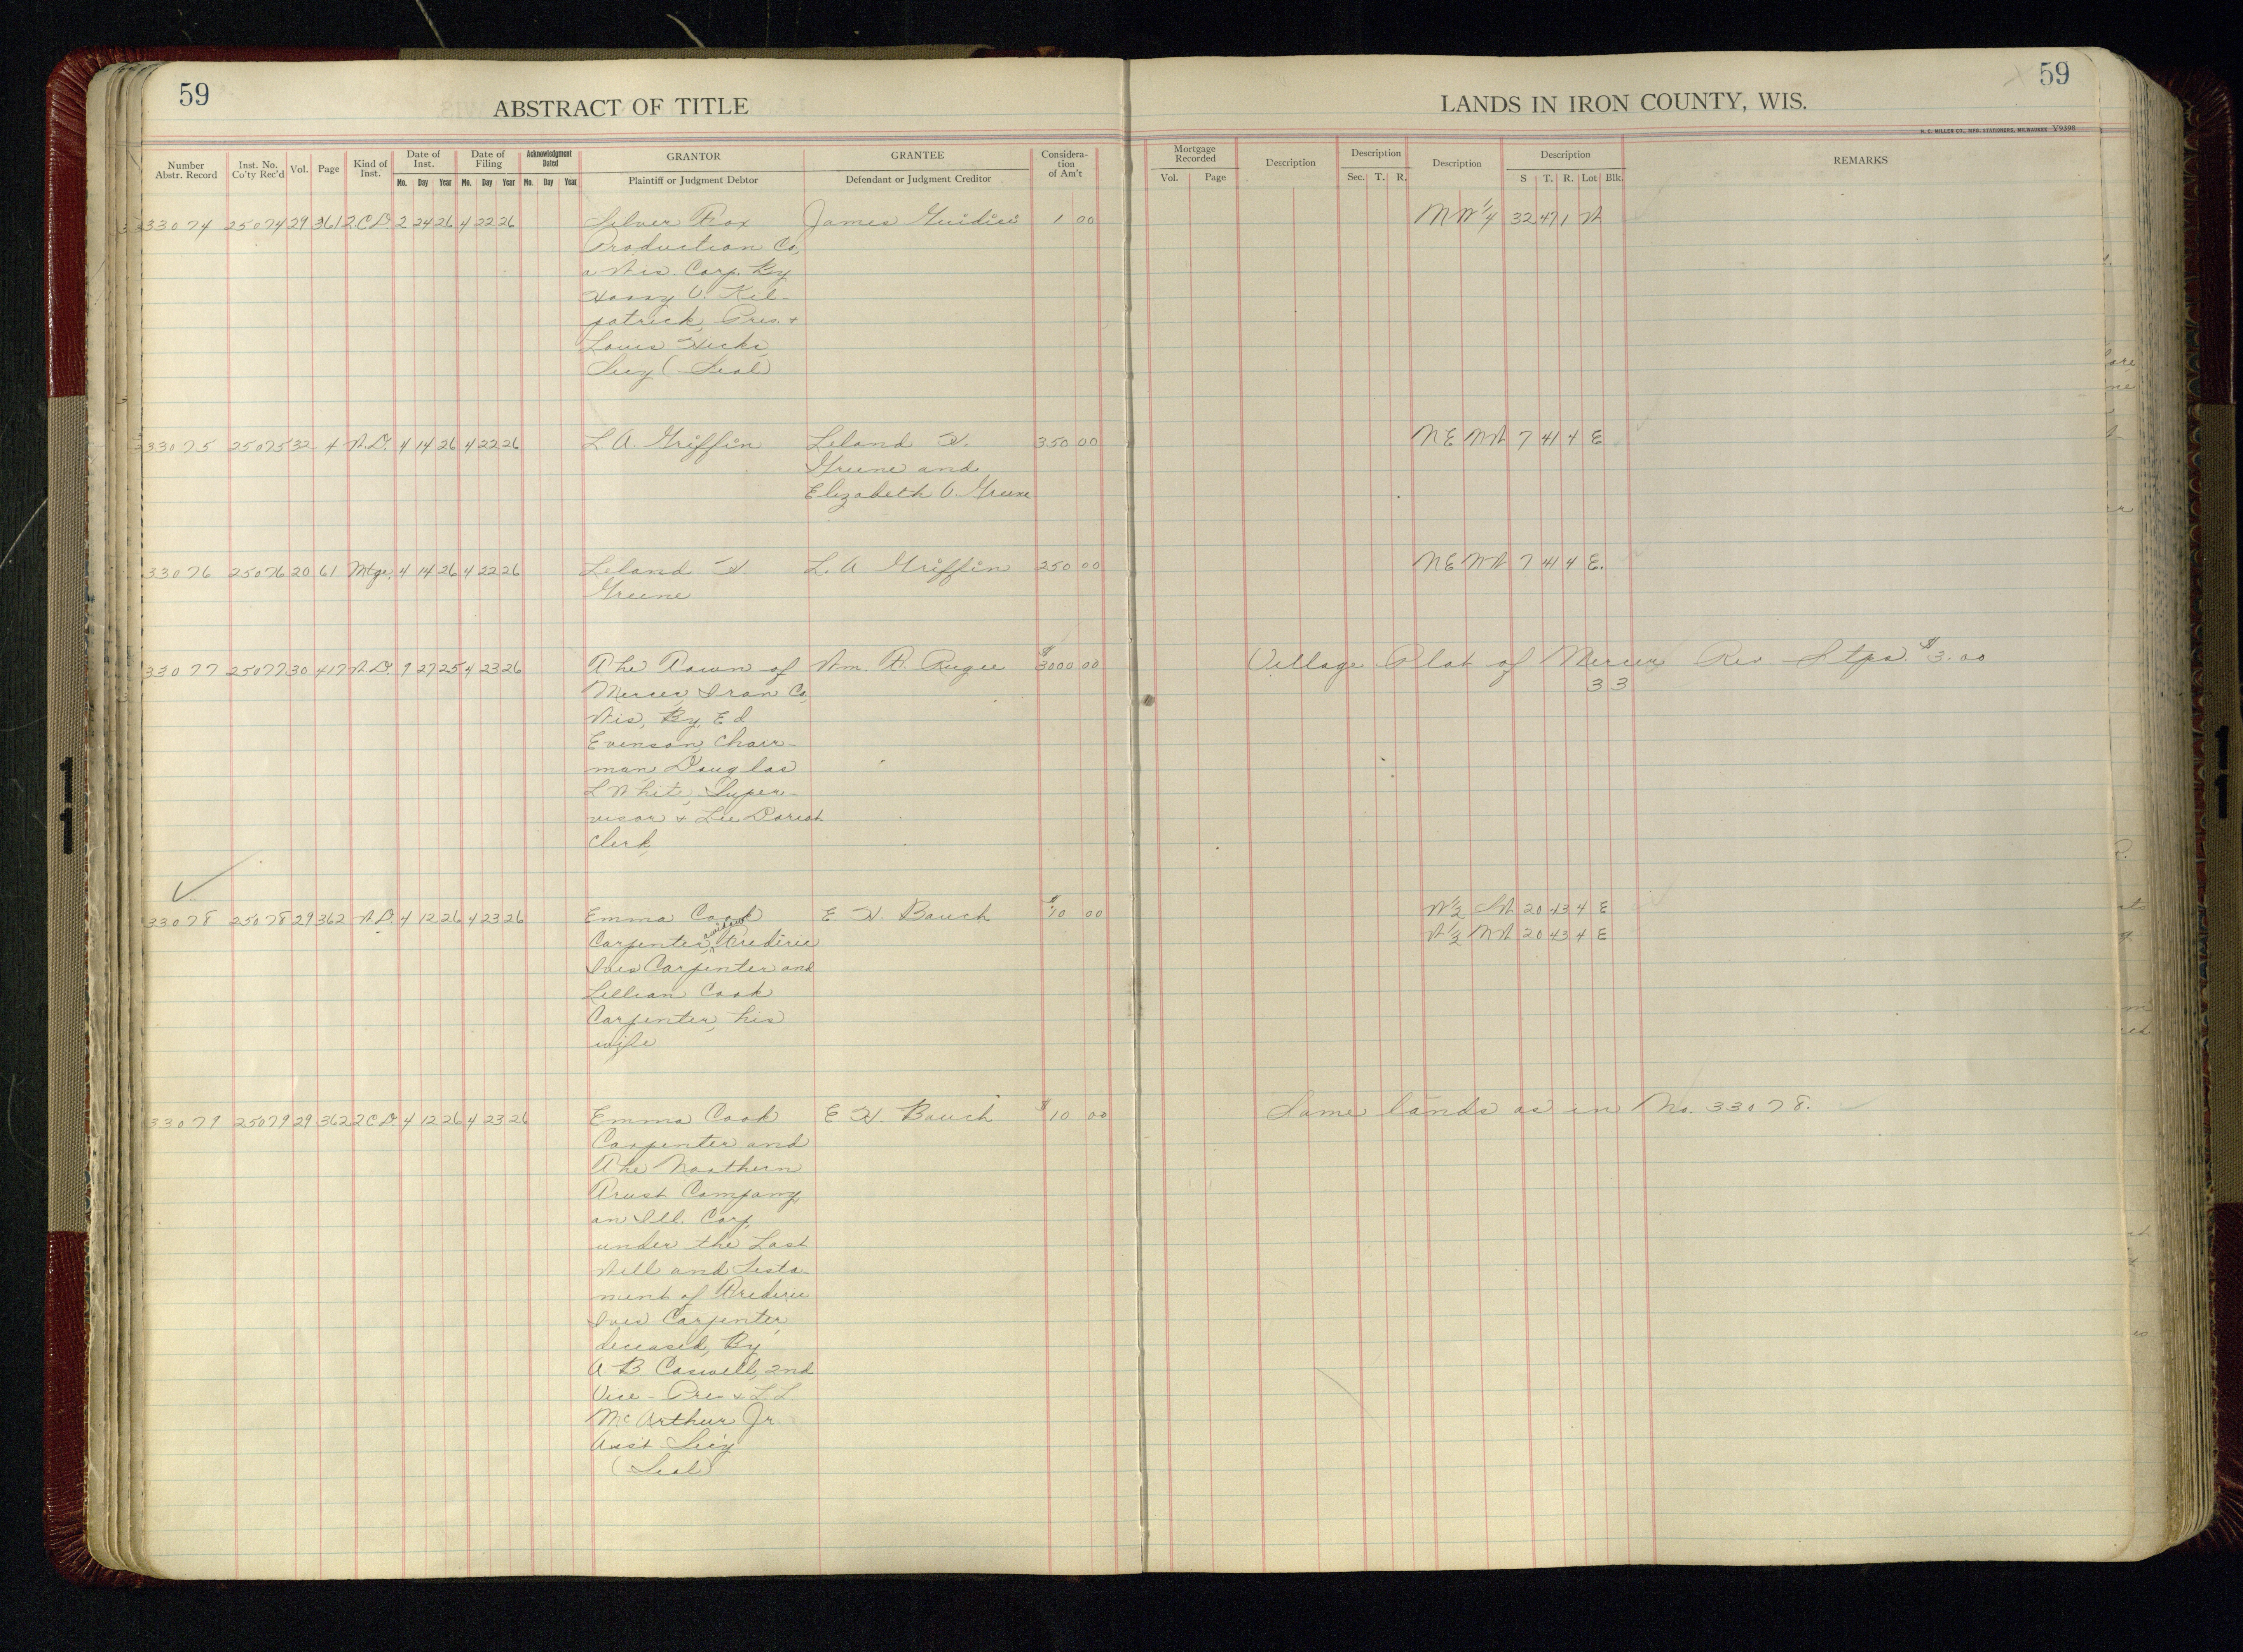 59
ABSTRACT OF TITLE
LANDS IN IRON COUNTY, WIS.
59
H. C. MILLER CO., MFG. STATIONERS, MILWAUKEE V9398
Number Abstr. Record
Inst. No. Co'ty Rec'd
Vol.
Page
Kind of Inst.
Date of Inst.
Mo. Day Year
Date of Filing
Mo. Day Year
Acknowledgment Dated
Mo. Day Year
GRANTOR
Plaintiff or Judgment Debtor
GRANTEE
Defendant or Judgment Creditor
Considera-
tion
of Am't
Mortgage Recorded
Vol. Page
Description
Description
Sec. T. R.
Description
Description
S T. R. Lot Blk.
REMARKS
33074 25074 29 361 2.C.D. 2 24 26 4 22 26 Silver Fox James Guidici 1 00 NW 1/4 32 47 1 W
Production Co,
a Wis. Corp. By
Harry V. Kil-
patrick, Pres. +
Louis
Secy (Seal)
33075 25075 32 4 W.D. 4 14 26 4 22 26 L. A. Griffin Leland H. 350 00 NE NW 7 41 4 E
Greene and
Elizabeth V. Greene
33076 25076 20 61 Mtge. 4 14 26 4 22 26 Leland H L. A Griffin 250 00 NE NW 7 41 4 E.
Greene
33077 25077 30 417 W.D. 9 27 25 4 23 26 The Town of Wm. F. Rugee $3000 00 Village Plat of Mercer Rev. Stps. $3.00
Mercer, Iron Co, 3 3
Wis, By, Ed
Evenson, Chair-
man Douglas
L White, Super-
visor + Lee
Clerk
33078 25078 29 362 W.D. 4 12 26 4 23 26 Emma Cook E H. Bauch $10 00 W 1/2 SW 20 43 4 E
Carpenter, widow, Frederic W 1/2 NW 20 43 4 E
Ives Carpenter and
Lillian Cook
Carpenter, his
wife
33079 25079 29 362 2CD. 4 12 26 4 23 26 Emma Cook E H. Bauch $10 00 Same lands as in No. 33078.
Carpenter and
The Northern
Trust Company
an Ill. Corp,
under the Last
Will and Testa-
ment of Frederic
Ives Carpenter,
deceased, By
A B Caswell, 2nd
Vice-Pres + L L
McArthur Jr
Asst Secy
(Seal)